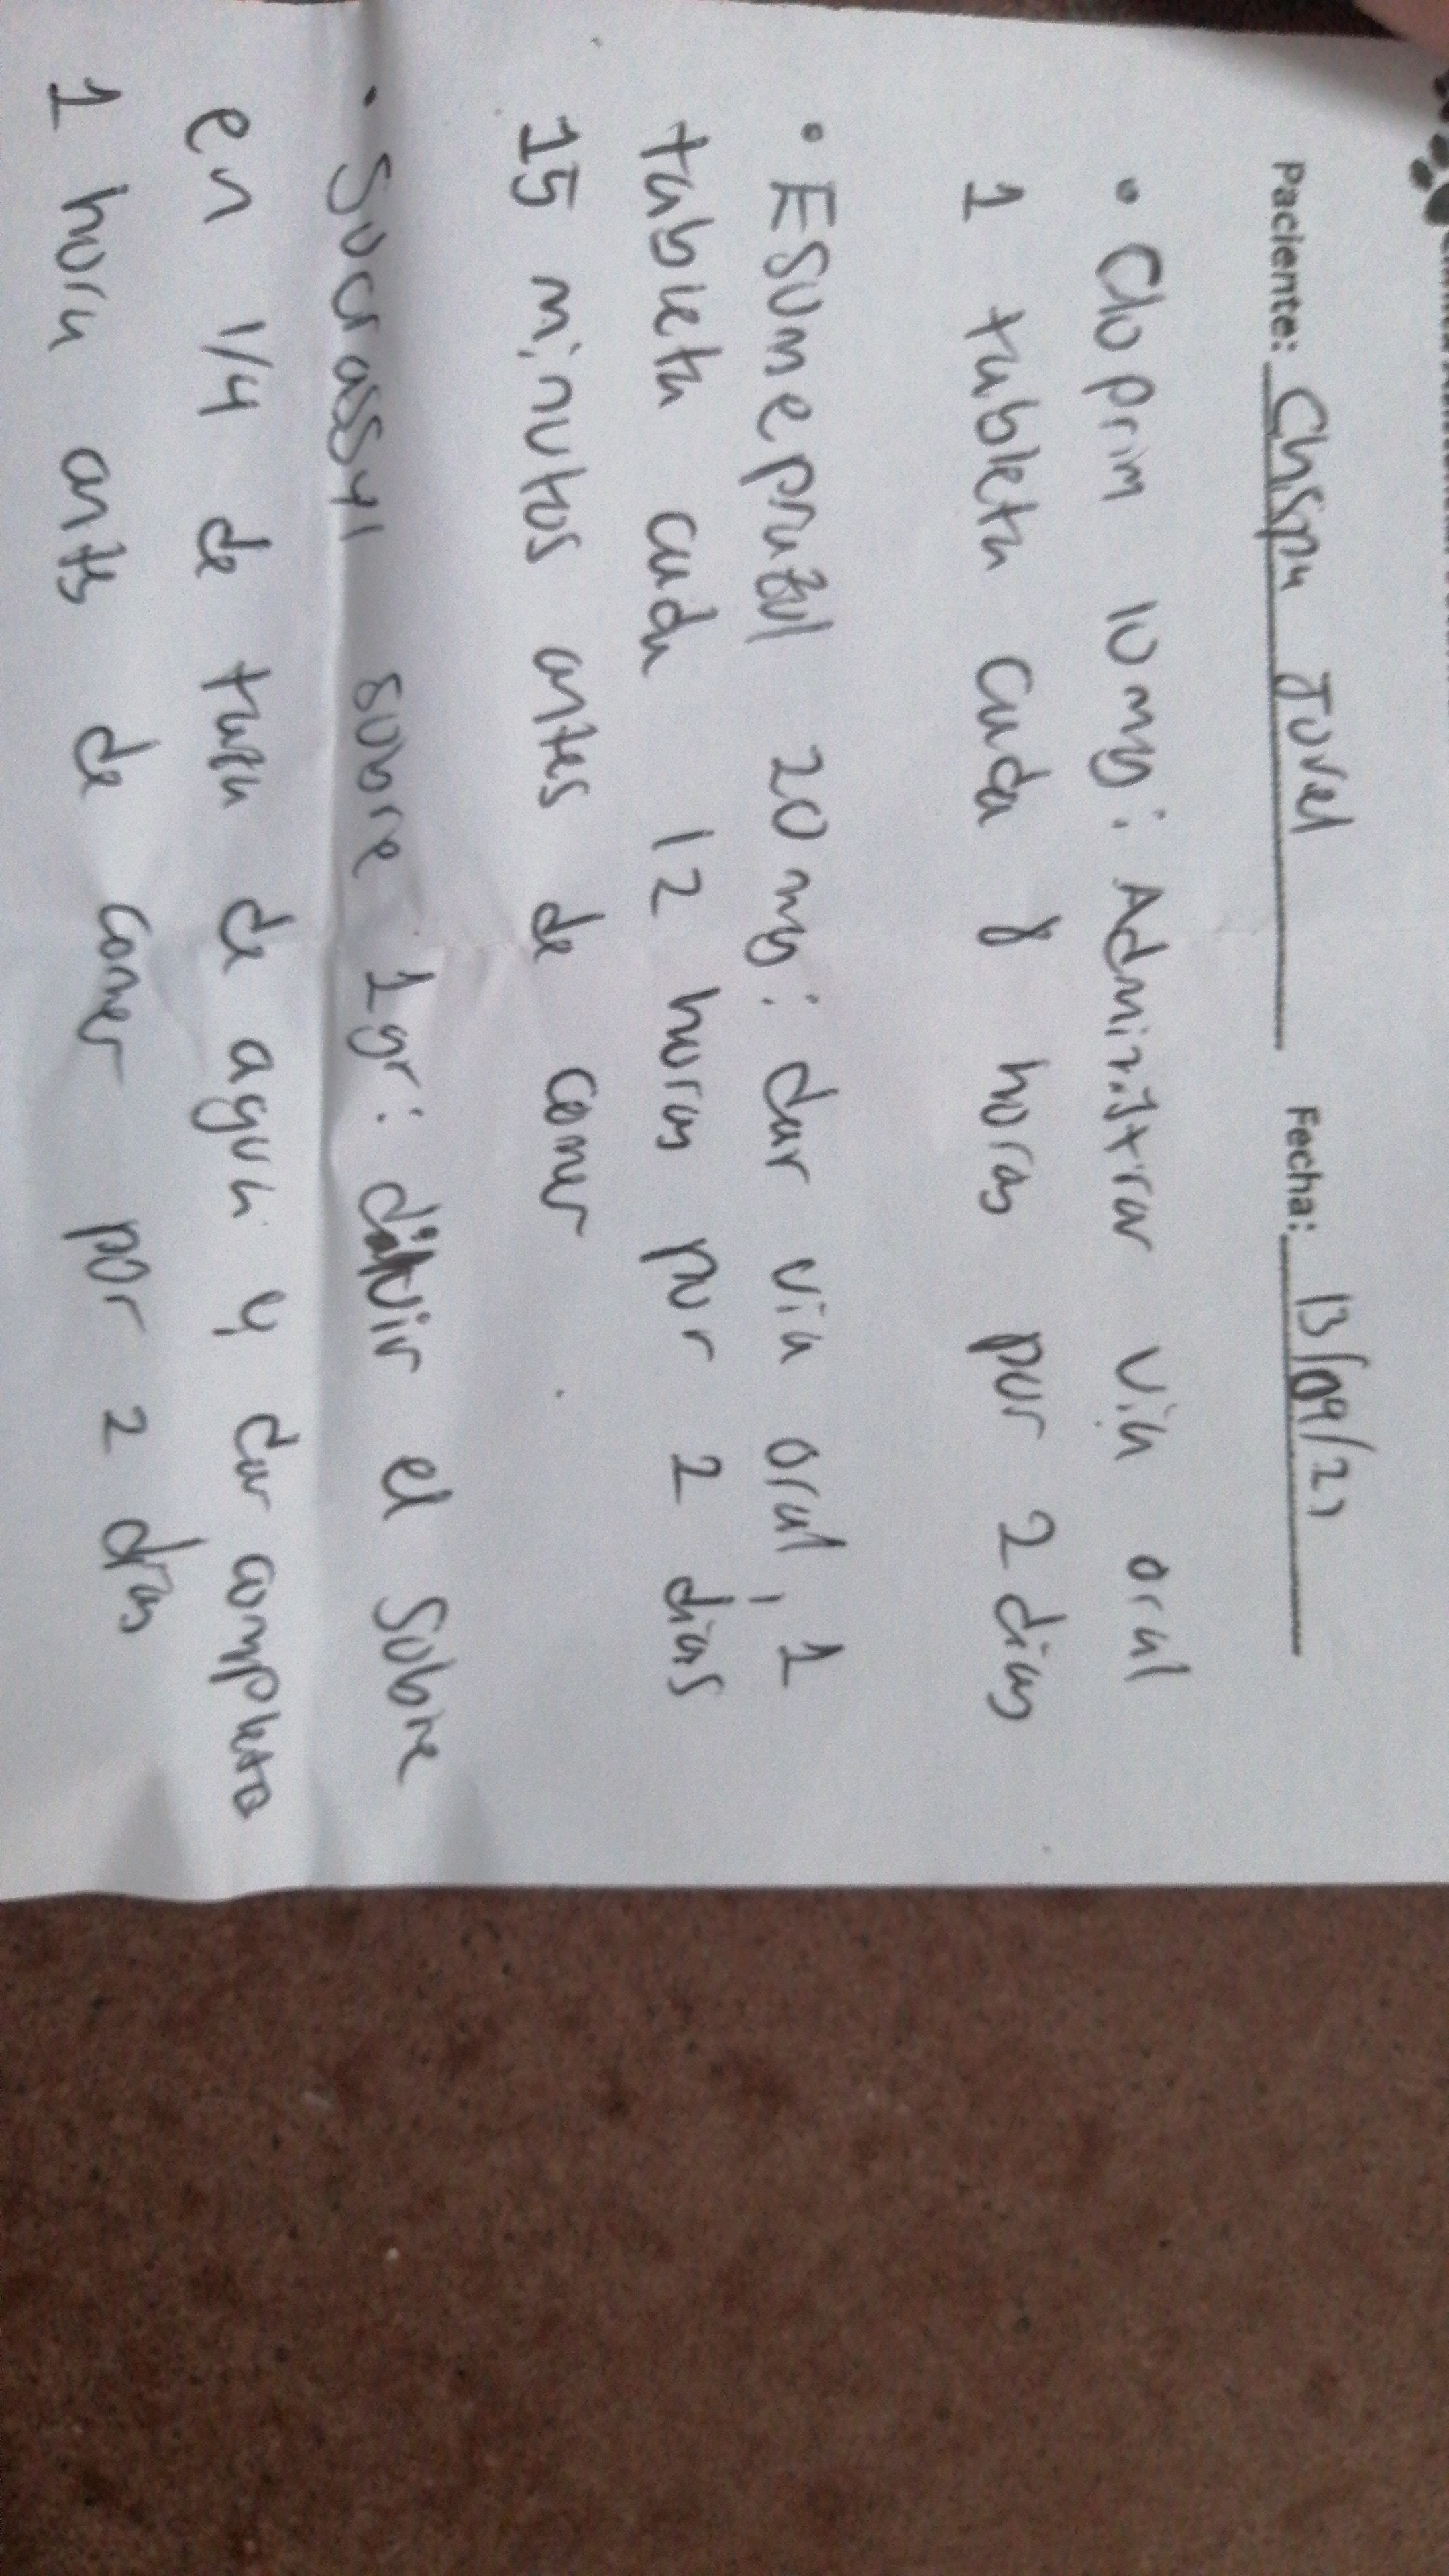 Paciente: Chispa Jovel Fecha: 13/09/21
• Cloprim 10mg: Administrar via oral
1 tableta cada 8 horas por 2 dias
• Esomeprazol 20 mg: dar via oral, 1
tableta cada 12 horas por 2 dias
15 minutos antes de comer
• Sucrassyl sobre 1gr: diluir el sobre
en 1/4 de taza de agua y dar completo
1 hora antes de comer por 2 dias